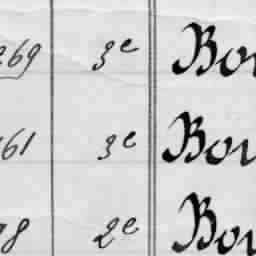 269 3e Bou
261 3e Bou
78 2e Bou